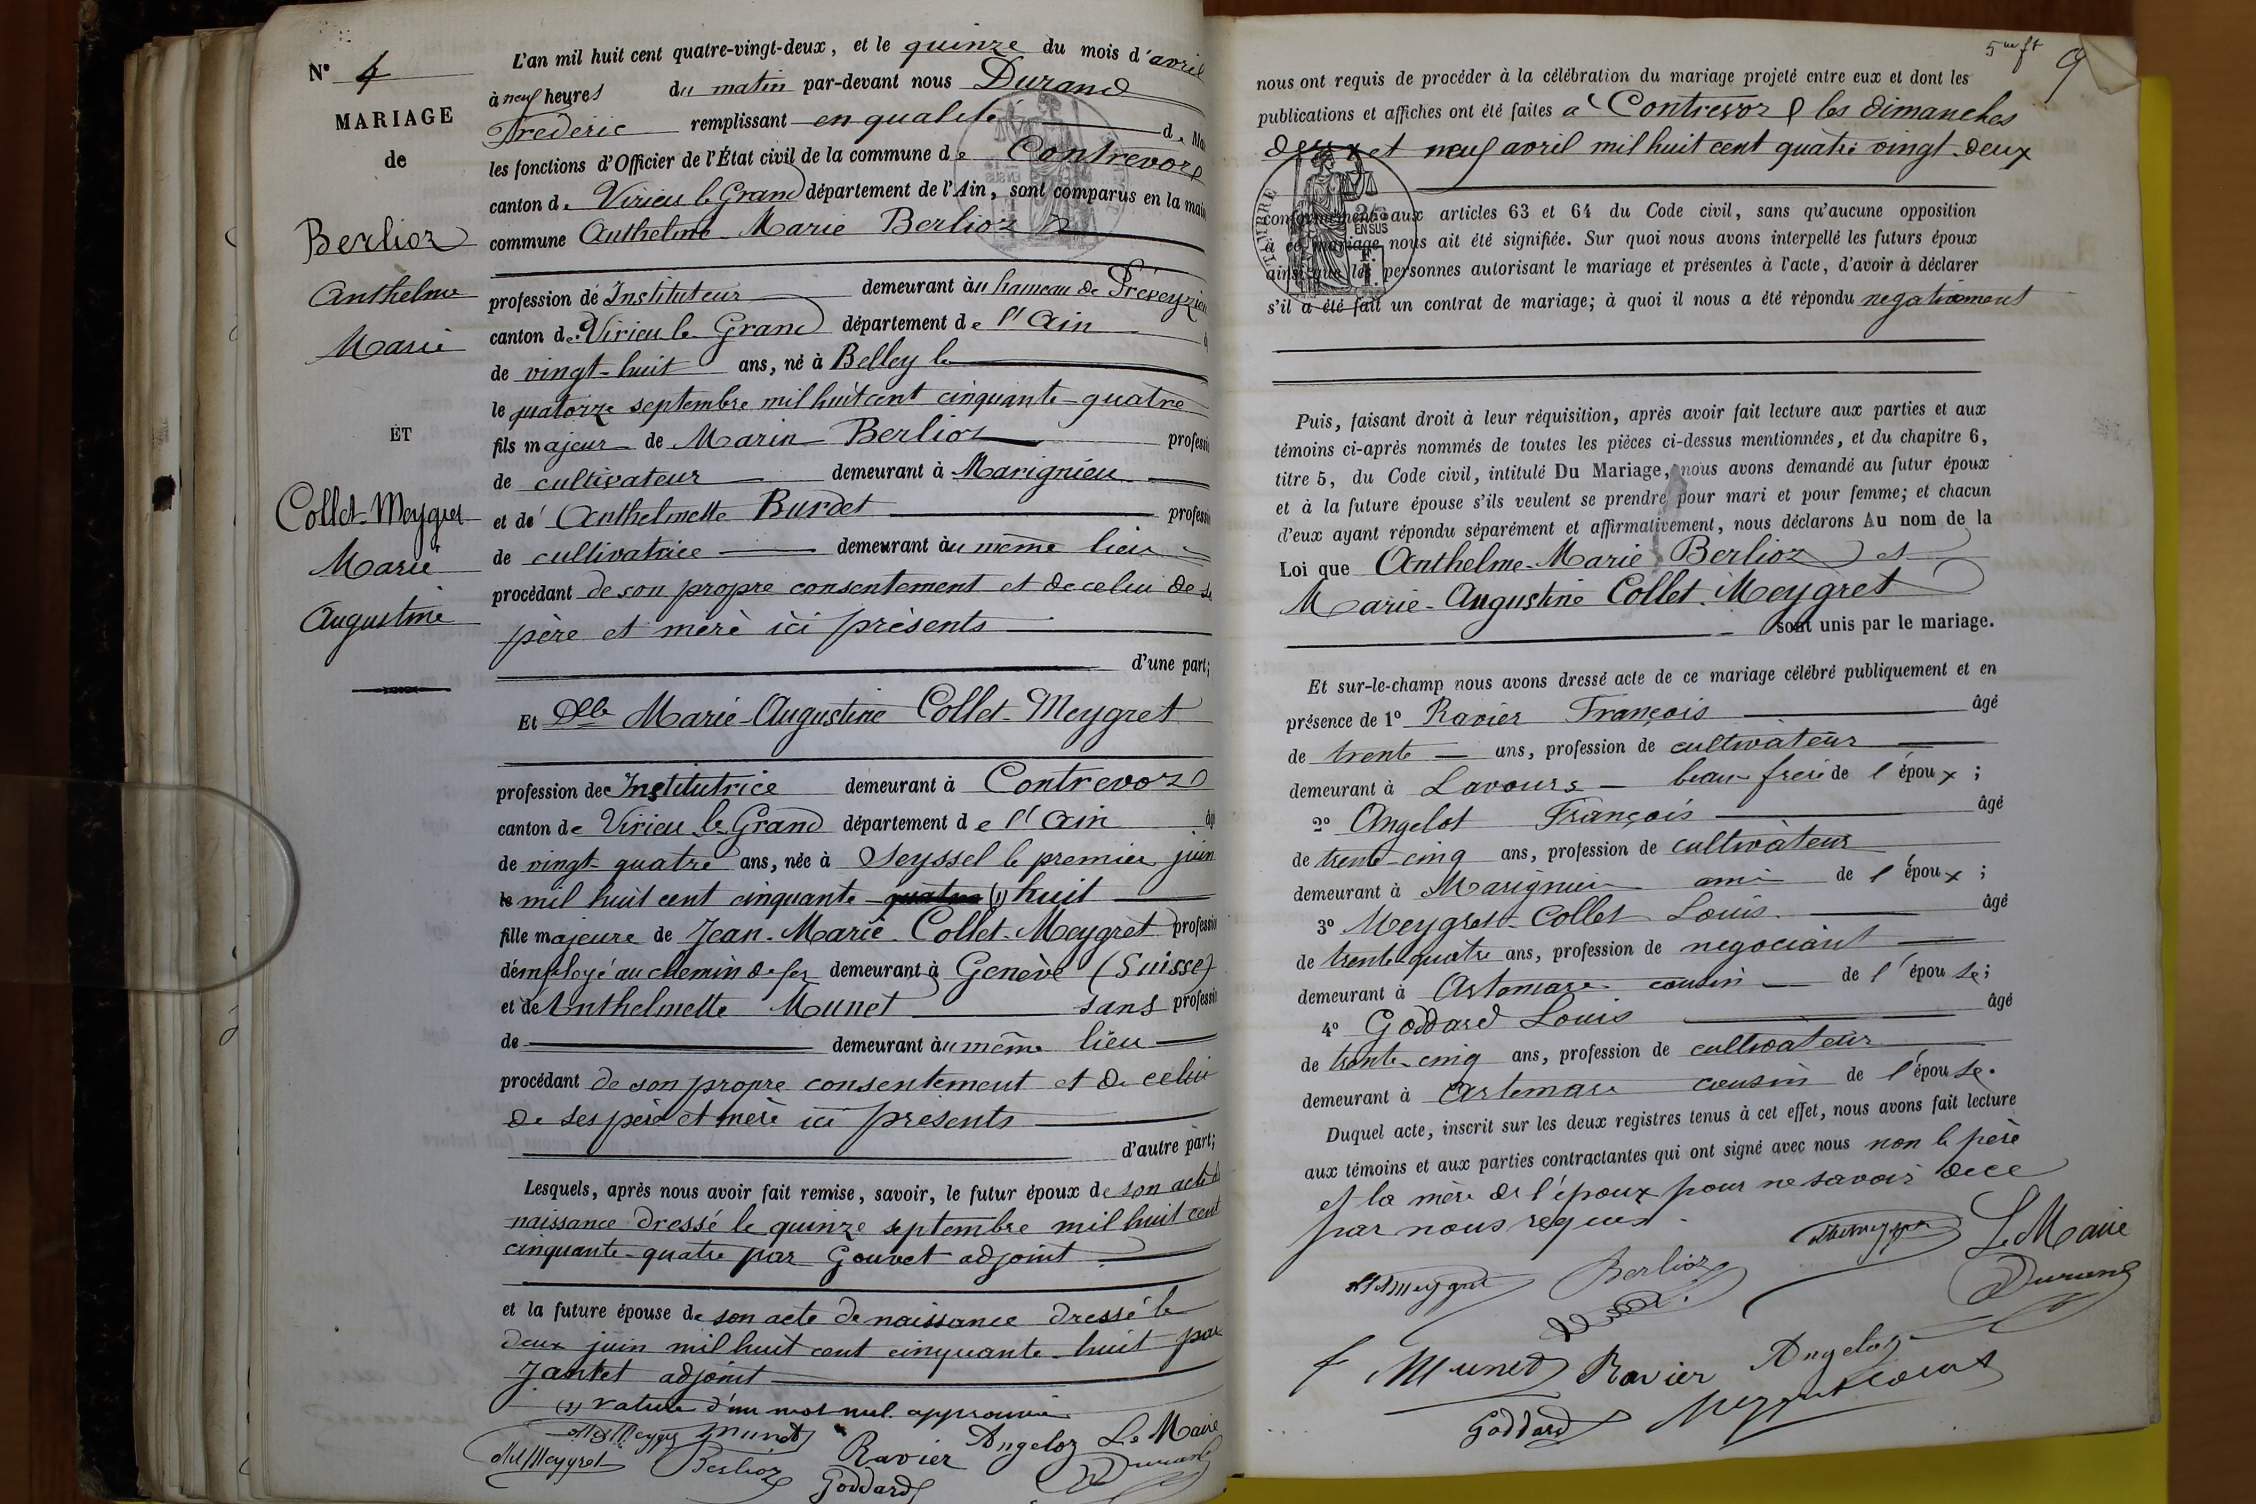 N° 4
MARIAGE
de
Berlioz
Anthelme
Marie
ET
Collet-Meygret
Marie
Augustine
L'an mil huit cent quatre-vingt-deux, et le quinze du mois d'avril
à neuf heures du matin par-devant nous Durand
Frédéric remplissant en qualité de
les fonctions d'Officier de l'État civil de la commune de Contrevoz
canton de Virieu le Grand département de l'Ain, sont comparus en la
commune Anthelme Marie Berlioz
profession de Instituteur demeurant au hameau de Préveyzieu
canton de Virieu le Grand département de l'Ain
de vingt-huit ans, né à Belley le
le quatorze septembre mil huit cent cinquante-quatre
fils majeur de Marin Berlioz profession
de cultivateur demeurant à Marignieu
et de Anthelmette Burdet profession
de cultivatrice demeurant au même lieu
procédant de son propre consentement et de celui de
père et mère ici présents
d'une part;
Et Dlle Marie-Augustine Collet-Meygret
profession de Institutrice demeurant à Contrevoz
canton de Virieu le Grand département de l'Ain
de vingt-quatre ans, née à Seyssel le premier juin
le mil huit cent cinquante quatre (1) huit
fille majeure de Jean-Marie Collet-Meygret profession
d'employé au chemin de fer demeurant à Genève (Suisse)
et de Anthelmette Munet sans profession
de demeurant au même lieu
procédant de son propre consentement et de celui
de ses père et mère ici présents
d'autre part;
Lesquels, après nous avoir fait remise, savoir, le futur époux de son acte de
naissance dressé le quinze septembre mil huit cent
cinquante-quatre par Gouvet adjoint
et la future épouse de son acte de naissance dressé le
deux juin mil huit cent cinquante-huit par
Jantet adjoint
(1) rature d'un mot nul approuvée
Munet
Berlioz Ravier Angeloz Le Maire
Goddard Durand
5me ft 9
nous ont requis de procéder à la célébration du mariage projeté entre eux et dont les
publications et affiches ont été faites à Contrevoz les dimanches
deux et neuf avril mil huit cent quatre vingt-deux
TIMBRE
EN SUS
conformément aux articles 63 et 64 du Code civil, sans qu'aucune opposition
à ce mariage nous ait été signifiée. Sur quoi nous avons interpellé les futurs époux
ainsi que les personnes autorisant le mariage et présentes à l'acte, d'avoir à déclarer
s'il a été fait un contrat de mariage; à quoi il nous a été répondu negativement
Puis, faisant droit à leur réquisition, après avoir fait lecture aux parties et aux
témoins ci-après nommés de toutes les pièces ci-dessus mentionnées, et du chapitre 6,
titre 5, du Code civil, intitulé Du Mariage, nous avons demandé au futur époux
et à la future épouse s'ils veulent se prendre pour mari et pour femme; et chacun
d'eux ayant répondu séparément et affirmativement, nous déclarons Au nom de la
Loi que Anthelme-Marie Berlioz et
Marie-Augustine Collet-Meygret
sont unis par le mariage.
Et sur-le-champ nous avons dressé acte de ce mariage célébré publiquement et en
présence de 1° Ravier François âgé
de trente ans, profession de cultivateur
demeurant à Lavours beau frère de l'époux;
2° Angelot François âgé
de trente-cinq ans, profession de cultivateur
demeurant à Marignieu ami de l'époux;
3° Meygret-Collet Louis âgé
de trente-quatre ans, profession de negociant
demeurant à Artemare cousin de l'épouse;
4° Goddard Louis âgé
de trente-cinq ans, profession de cultivateur
demeurant à Artemare cousin de l'épouse.
Duquel acte, inscrit sur les deux registres tenus à cet effet, nous avons fait lecture
aux témoins et aux parties contractantes qui ont signé avec nous non le père
et la mère de l'époux pour ne savoir de ce
par nous requis.
Le Maire
Berlioz Durand
f Munet Ravier Angeloz
Goddard